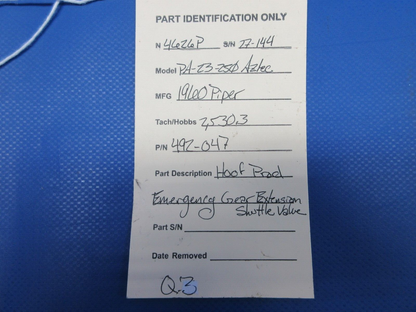 PART IDENTIFICATION ONLY
N 4626P S/N 27-144
Model PA-23-250 Aztec
MFG 1960 Piper
Tach/Hobbs 2,530.3
P/N 492-047
Part Description Hoof Prod
Emergency Gear Extension
Shuttle Valve
Part S/N
Date Removed
Q3